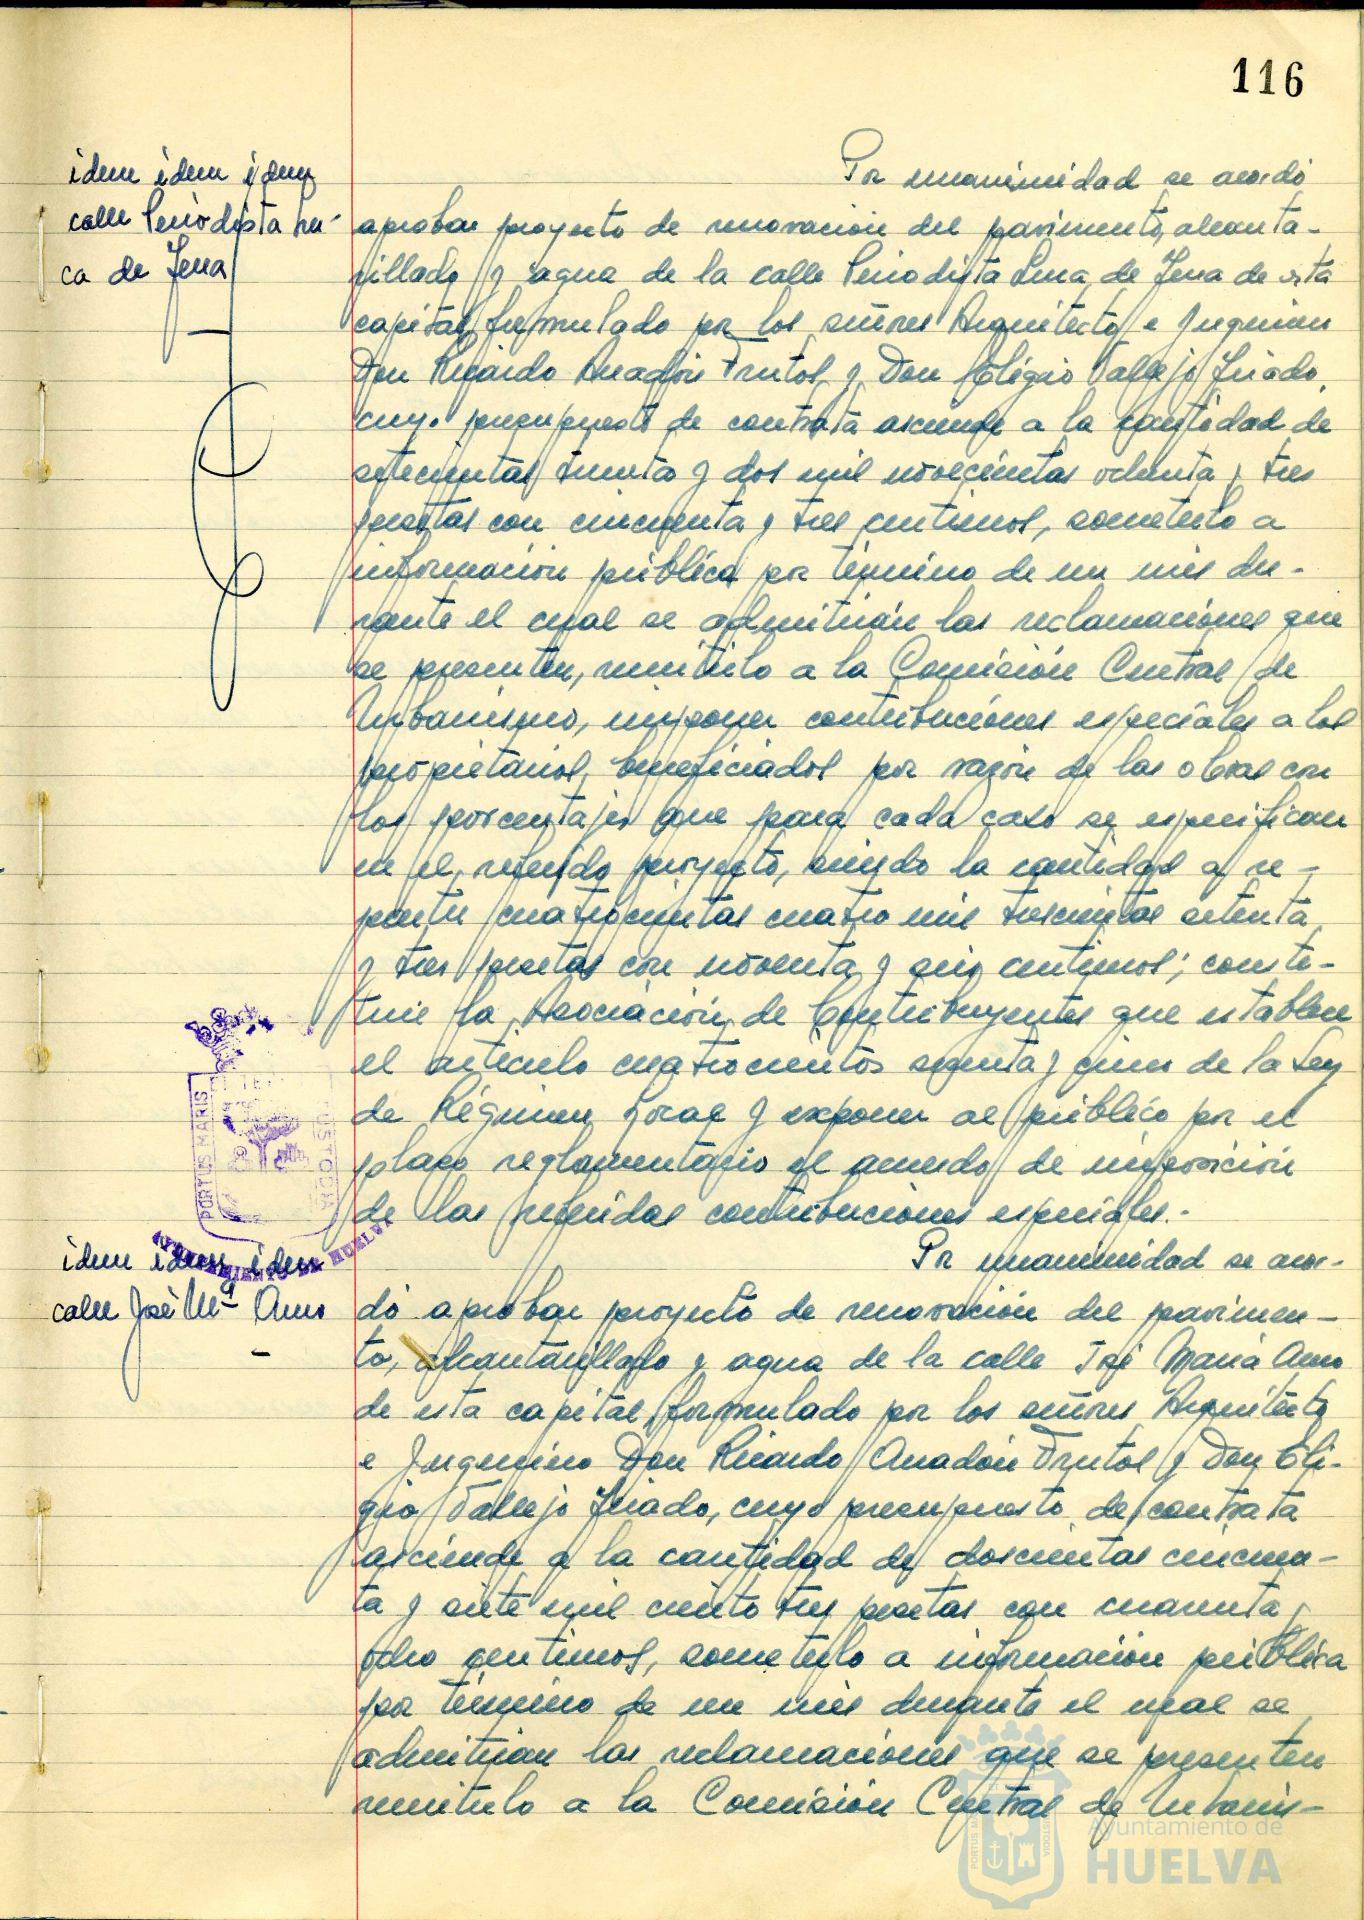 116
idem idem idem
calle Periodista Lu-
ca de Tena
Por unanimidad se acordó
aprobar proyecto de renovación del pavimento, alcanta-
rillado y agua de la calle Periodista Luca de Tena de esta
capital, formulado por los señores Arquitecto e Ingeniero
Don Ricardo Anadón Frutos y Don Eligio Vallejo Triado,
cuyo presupuesto de contrata asciende a la cantidad de
setecientas treinta y dos mil novecientas ochenta y tres
pesetas con cincuenta y tres centimos, someterlo a
información pública por término de un mes du-
rante el cual se admitirán las reclamaciones que
se presenten, remitirlo a la Comisión Central de
Urbanismo, imponer contribuciones especiales a los
propietarios beneficiados por razón de las obras con
los porcentajes que para cada caso se especifican
en el referido proyecto, siendo la cantidad a re-
partir cuatrocientas cuatro mil trescientas setenta
y tres pesetas con noventa y seis centimos; consti-
tuir la Asociación de Contribuyentes que establece
el artículo cuatrocientos sesenta y cinco de la Ley
de Régimen Local y exponer al público por el
plazo reglamentario el acuerdo de imposición
de las referidas contribuciones especiales.-
PORTUS MARIS ET TERRAE CUSTODIA
AYUNTAMIENTO DE HUELVA
idem idem idem
calle José Mª Amo
Por unanimidad se acor-
dó aprobar proyecto de renovación del pavimen-
to, alcantarillado y agua de la calle José María Amo
de esta capital, formulado por los señores Arquitecto
e Ingeniero Don Ricardo Anadón Frutos y Don Eli-
gio Vallejo Triado, cuyo presupuesto de contrata
asciende a la cantidad de doscientas cincuen-
ta y siete mil ciento tres pesetas con cuarenta y
ocho centimos, someterlo a información pública
por término de un mes durante el cual se
admitirán las reclamaciones que se presenten
remitirlo a la Comisión Central de Urbanis-
Ayuntamiento de
HUELVA